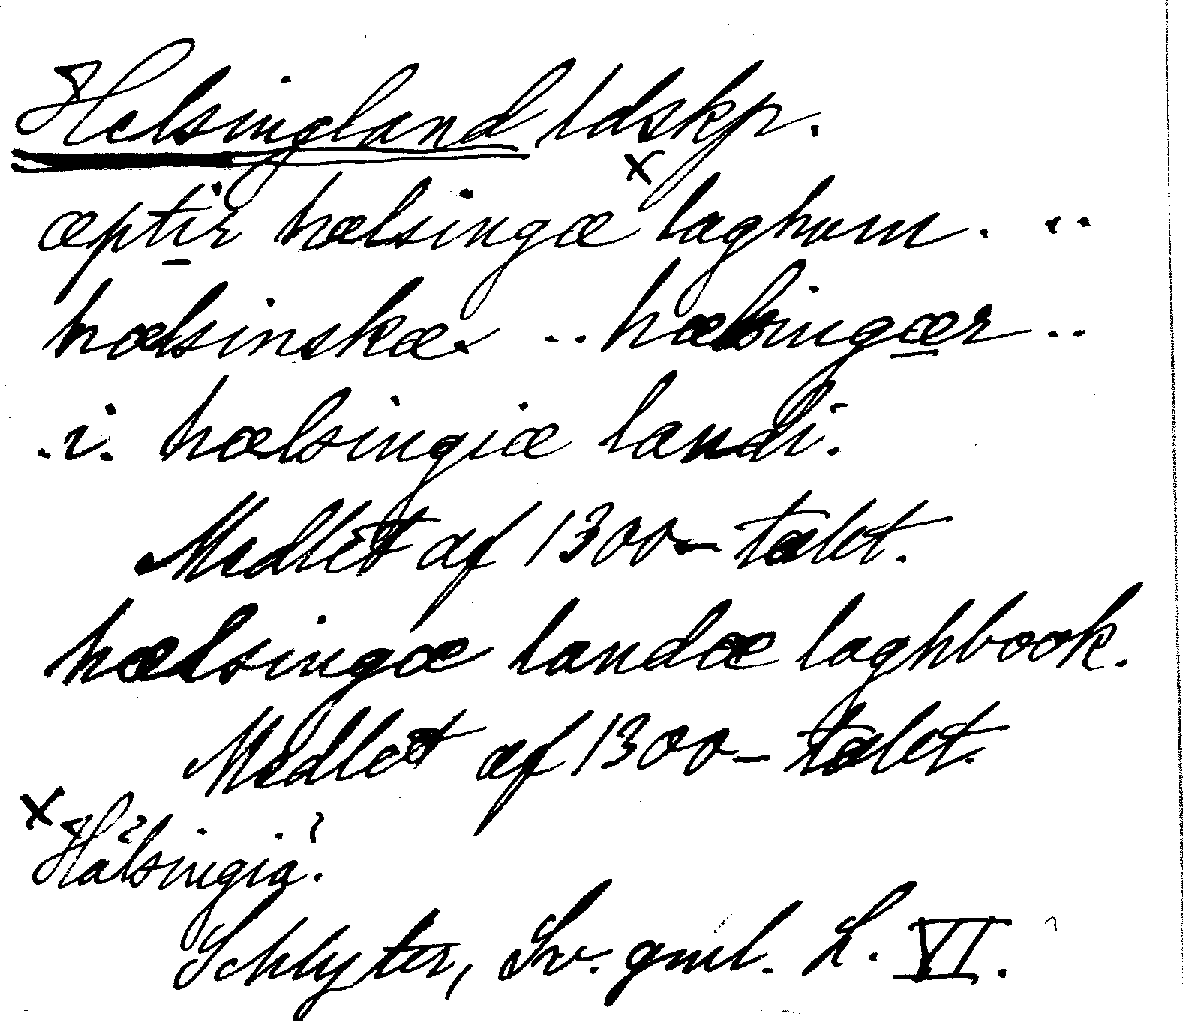 Helsingland ldskp.
æptir hælsingæ x laghum. ..
hælsinskæ .. hælsingær ..
.i. hælsingiæ landi.
Medlet af 1300-talet.
hælsingæ landæ laghbook.
Medlet af 1300-talet.
x Hälsingiä.
Schlyter, Sv. gml. L. VI.